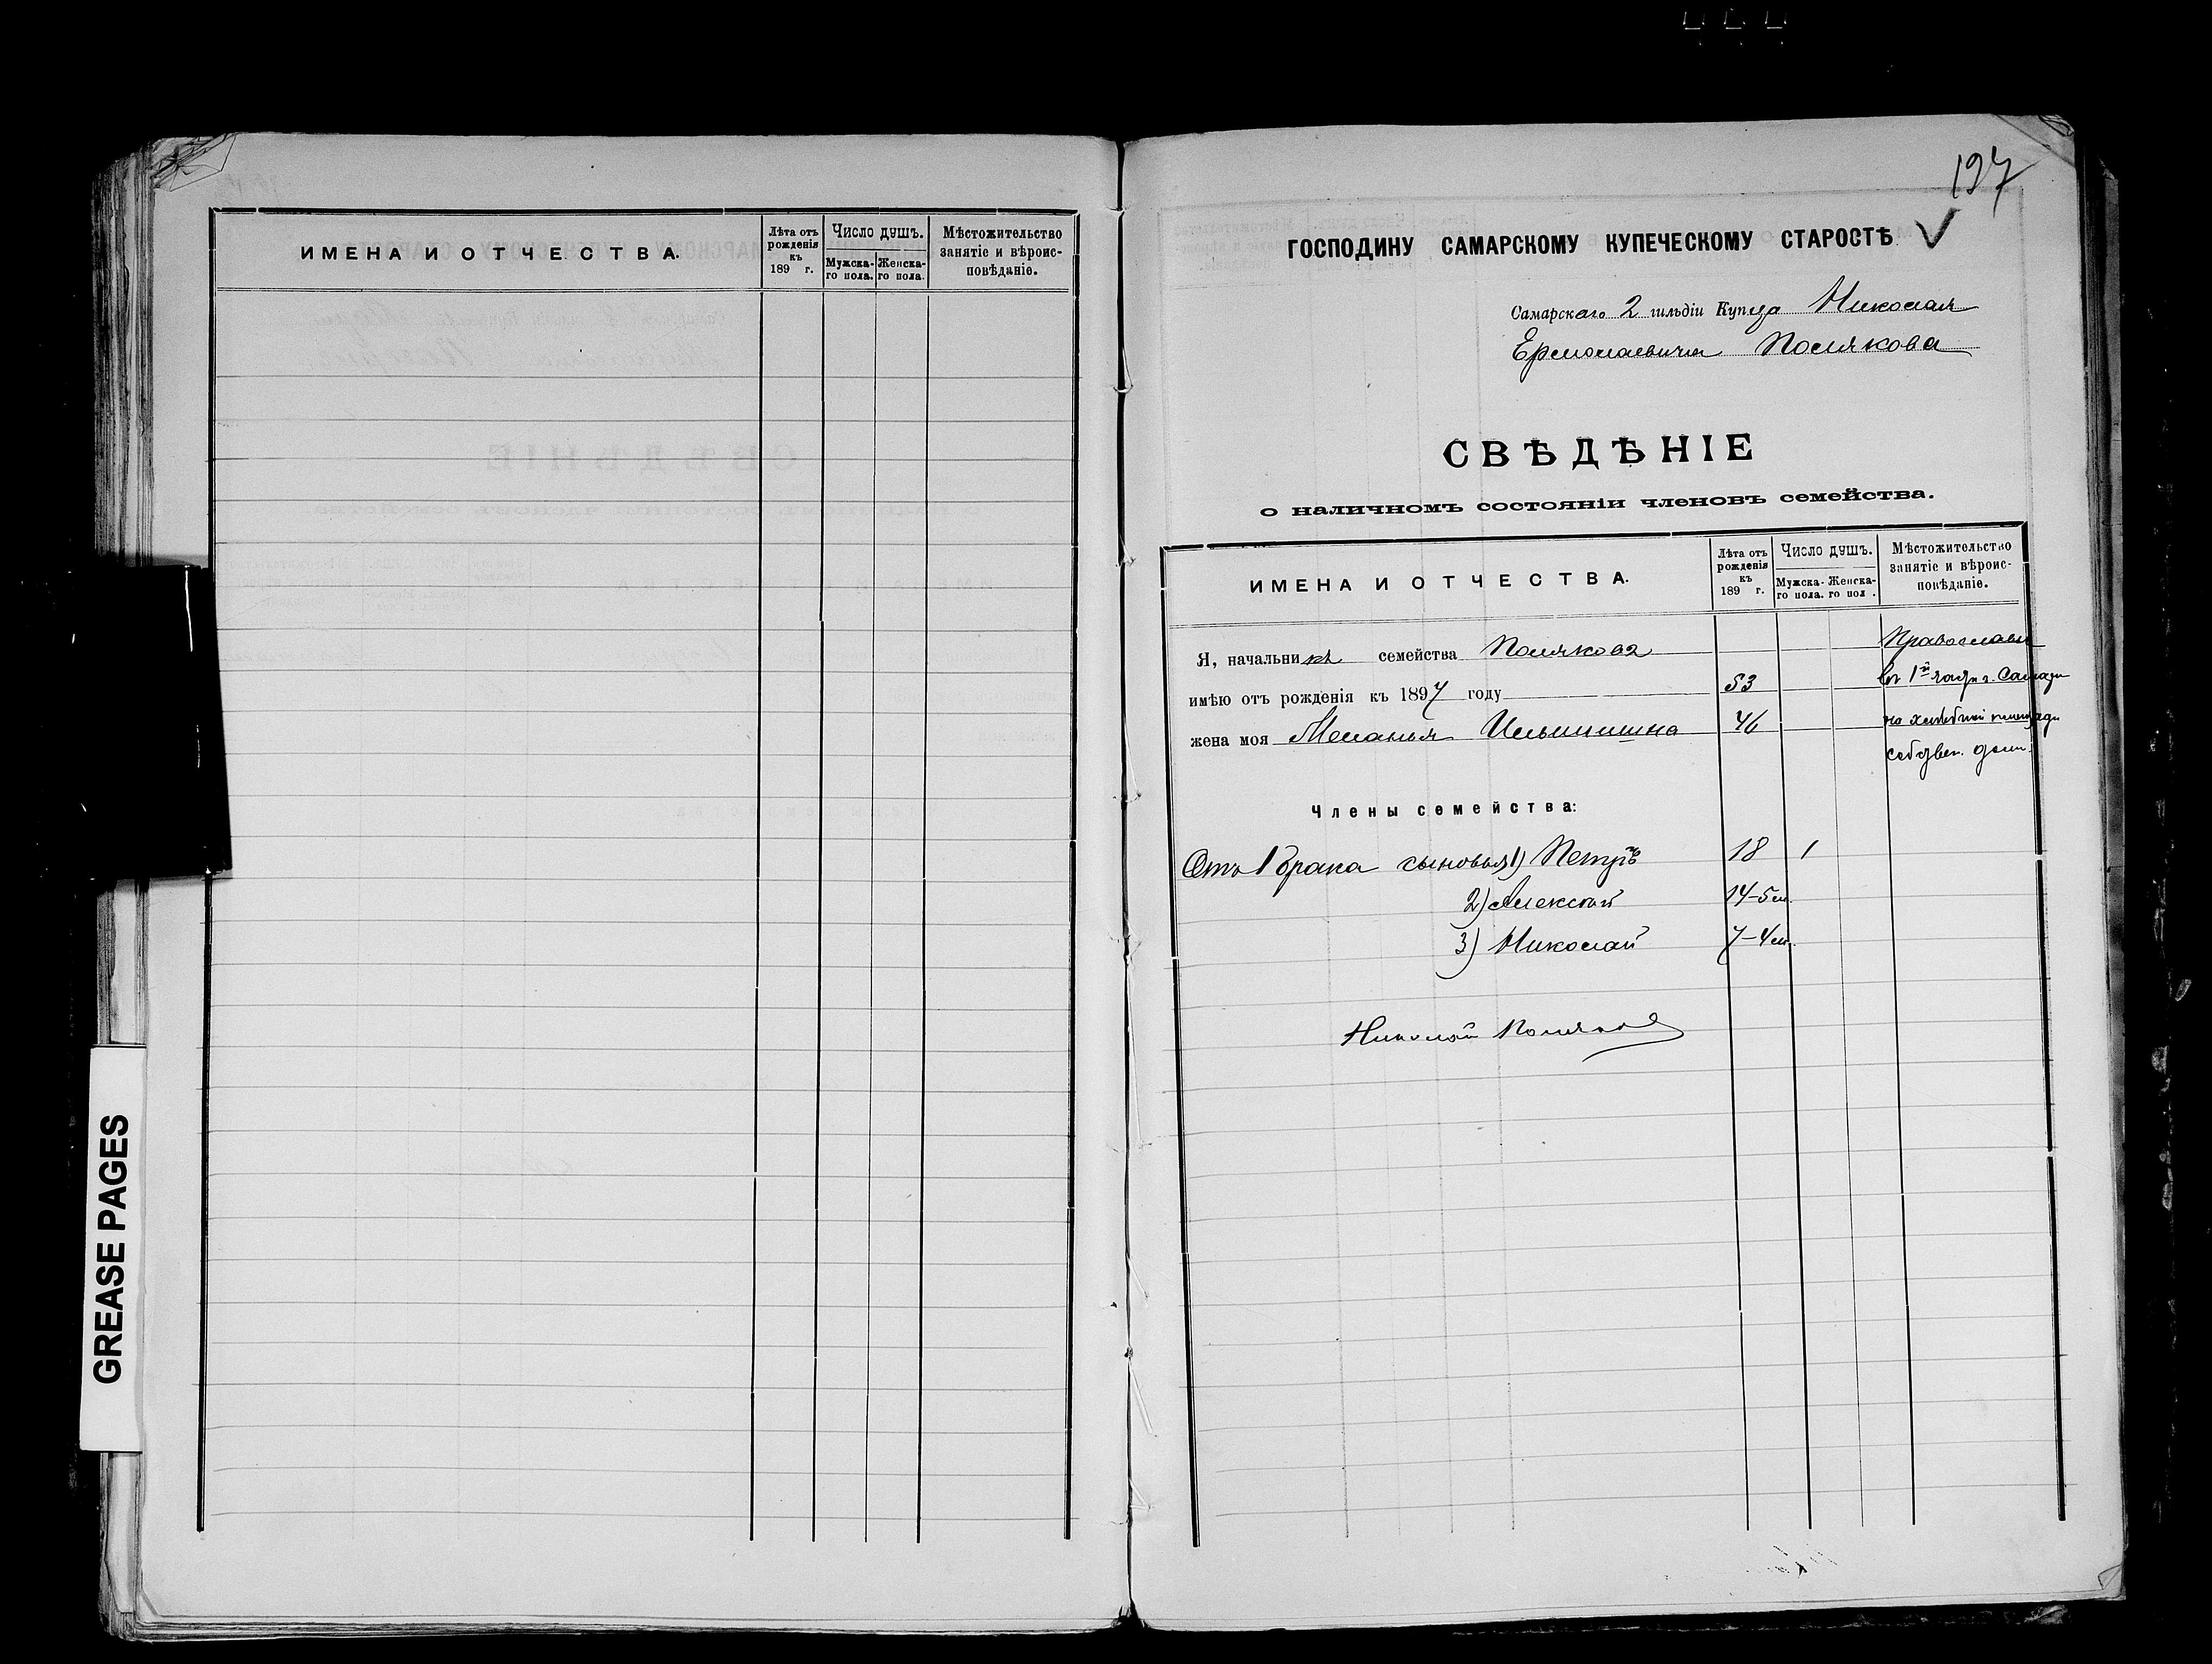 ИМЕНА И ОТЧЕСТВА.
Лѣта отъ рожденія къ 189 г.
Число душъ.
Мужска-го пола.
Женска-го пола.
Мѣстожительство занятіе и вѣроис-повѣданіе.
GREASE PAGES
197
ГОСПОДИНУ САМАРСКОМУ КУПЕЧЕСКОМУ СТАРОСТѢ
Самарскаго 2 гильдіи Купца Николая
Ермолаевича Полякова
СВѢДѢНІЕ
о наличномъ состояніи членовъ семейства.
ИМЕНА И ОТЧЕСТВА.
Лѣта отъ рожденія къ 189 г.
Число душъ.
Мужска-го пола.
Женска-го пол .
Мѣстожительство занятіе и вѣроис-повѣданіе.
Я, начальникъ семейства Полякова Православн
имѣю отъ рожденія къ 1897 году 53 въ 1й части г. Самары
жена моя Меланья Ильинишна 46 на хлебной площади
собствен. домъ.
Члены семейства:
Отъ 1 брака сыновья 1) Петръ 18 1
2) Алексей 14-5м.
3) Николай 7-4м.
Николай Поляков